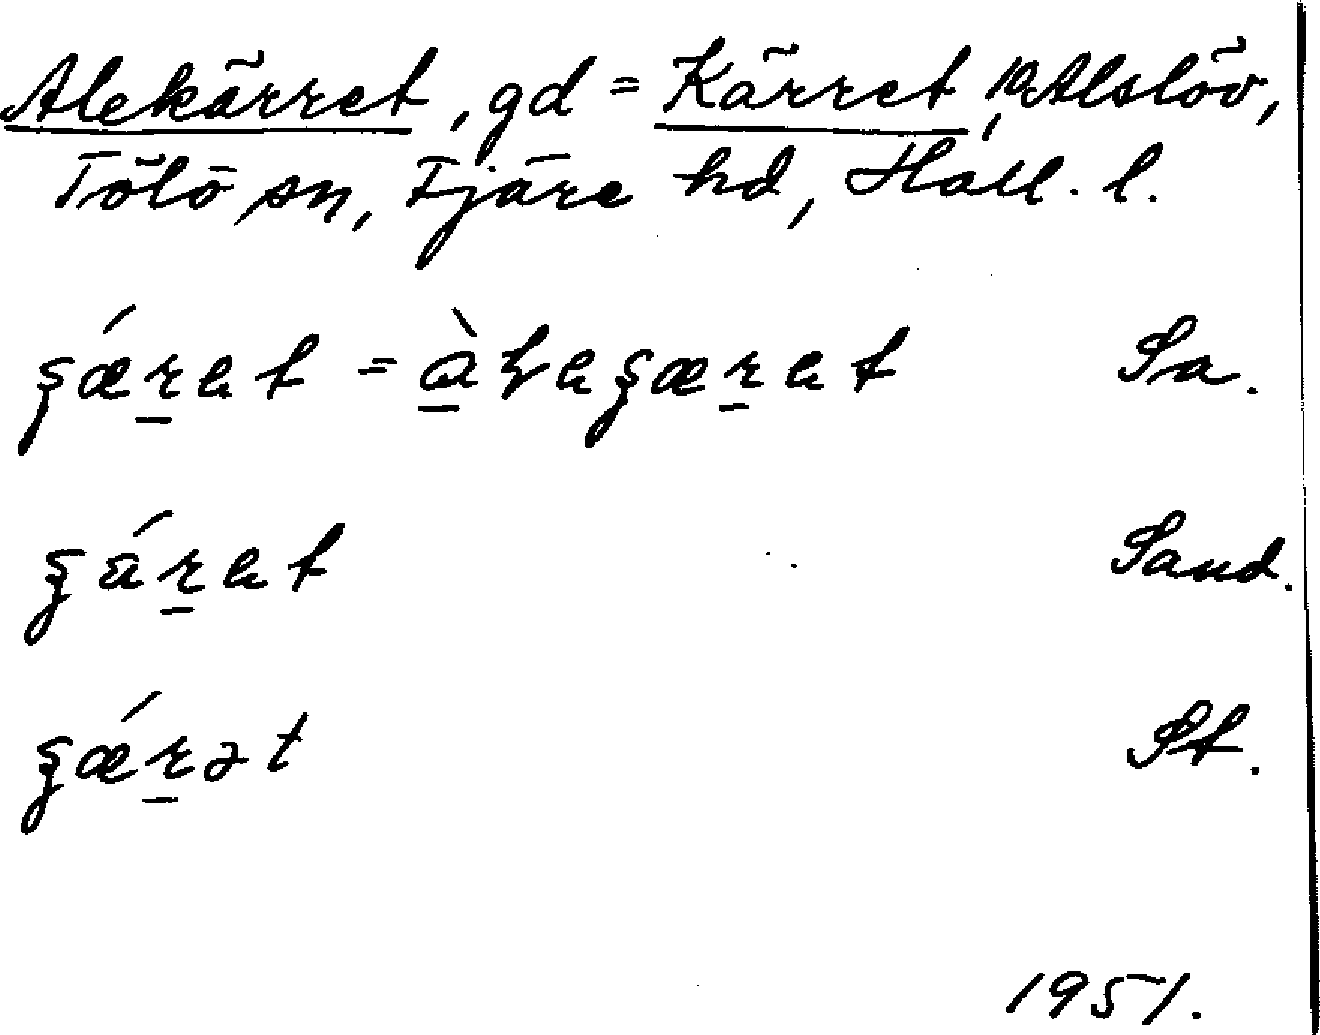 Alekärret, gd = Kärret, 10 Alslöv,
Tölö sn, Fjäre hd, Hall. l.
ʂǽr̠et = à̠ɫeʂær̠et Sa.
ʂár̠et Sand.
ʂǽr̠ət St.
1951.